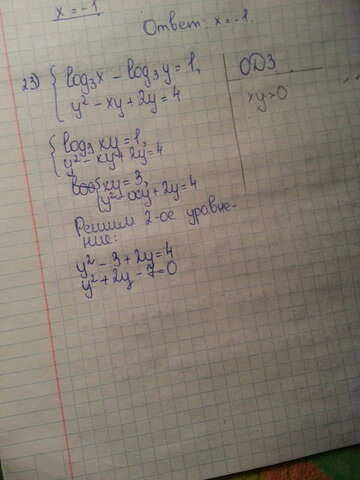 x = -1
Ответ: x = -1.
23) { log₃x - log₃y = 1,
y² - xy + 2y = 4
ОДЗ
xy>0
{ log₃ xy = 1,
y² - xy + 2y = 4
{ xy = 3,
y² - xy + 2y = 4
Решим 2-ое уравне-
ние:
y² - 3 + 2y = 4
y² + 2y - 7 = 0